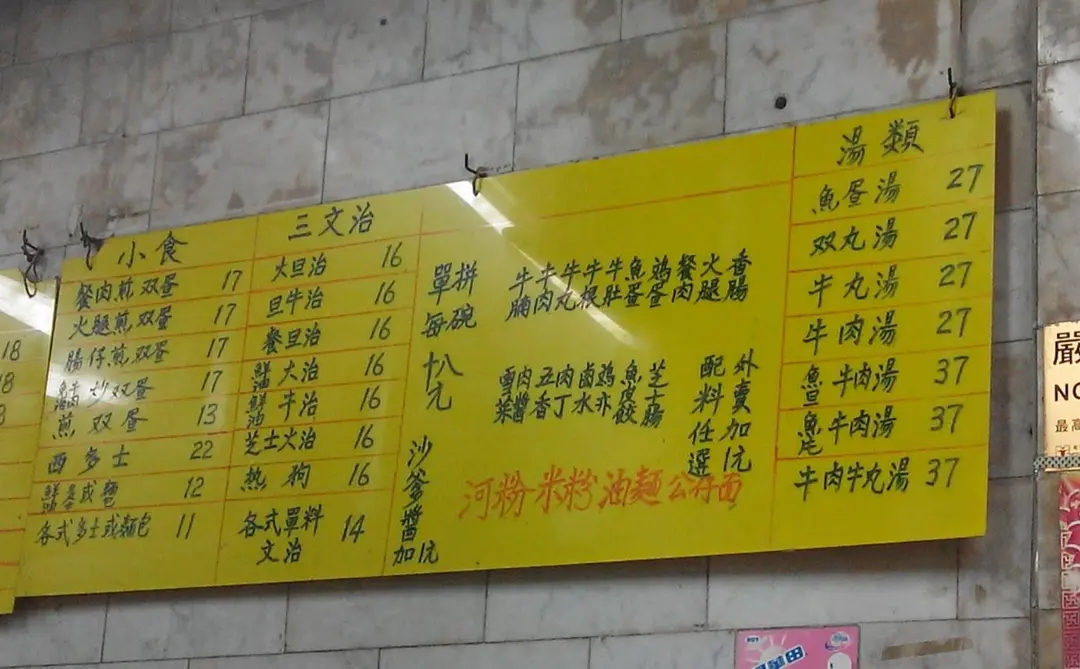 18
小食
餐肉煎双蛋 17
火腿煎双蛋 17
腸仔煎双蛋 17
炒双蛋 17
煎双蛋 13
西多士 22
鮮油 或 12
各式多士或麵包 11
三文治
火旦治 16
旦牛治 16
餐旦治 16
鮮油火治 16
鮮油牛治 16
芝士火治 16
热狗 16
各式單料
文治 14
單拼
每碗
十八元
沙爹醬
加1元
牛腩
牛肉
牛丸
牛根
牛肚
魚蛋
鸡蛋
餐肉
火腿
香腸
雪菜
肉醬
五香
肉丁
鹵水
鸡亦
魚皮餃
芝士腸
配料任選
外賣加1元
河粉 米粉 油麵 公仔面
湯類
魚蛋湯 27
双丸湯 27
牛丸湯 27
牛肉湯 27
魚旦牛肉湯 37
魚尾牛肉湯 37
牛肉牛丸湯 37
嚴
NO
最高